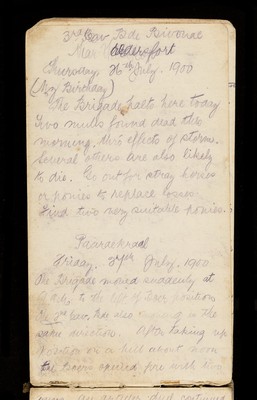 3rd Cav Bde Bivouac
Near Elderfort
Thursday 26th July. 1900
(My Birthday)
The Brigade halt here today
Two mules found dead this
morning. thro effects of storm.
Several others are also likely
to die. Go out for stray horses
or ponies to replace losses.
Find two very suitable ponies.
Paardekraal
Friday. 27th July. 1900
The Brigade moved suddenly at
to the left of position
3rd Cav. Bde also moving in the
same direction. After taking up
Position on a hill about noon
the Boers opened fire with